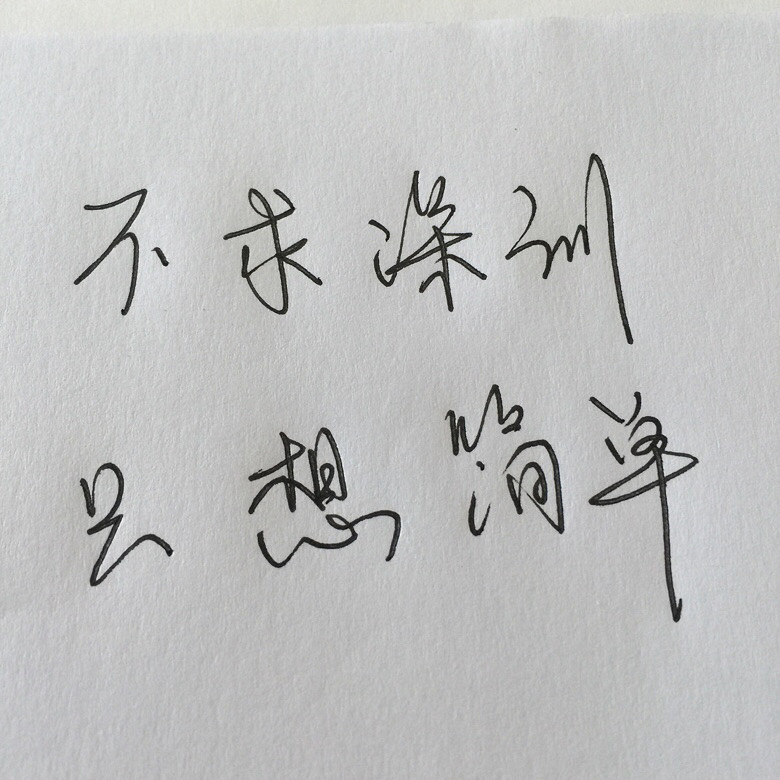 不求深刻
只想简单